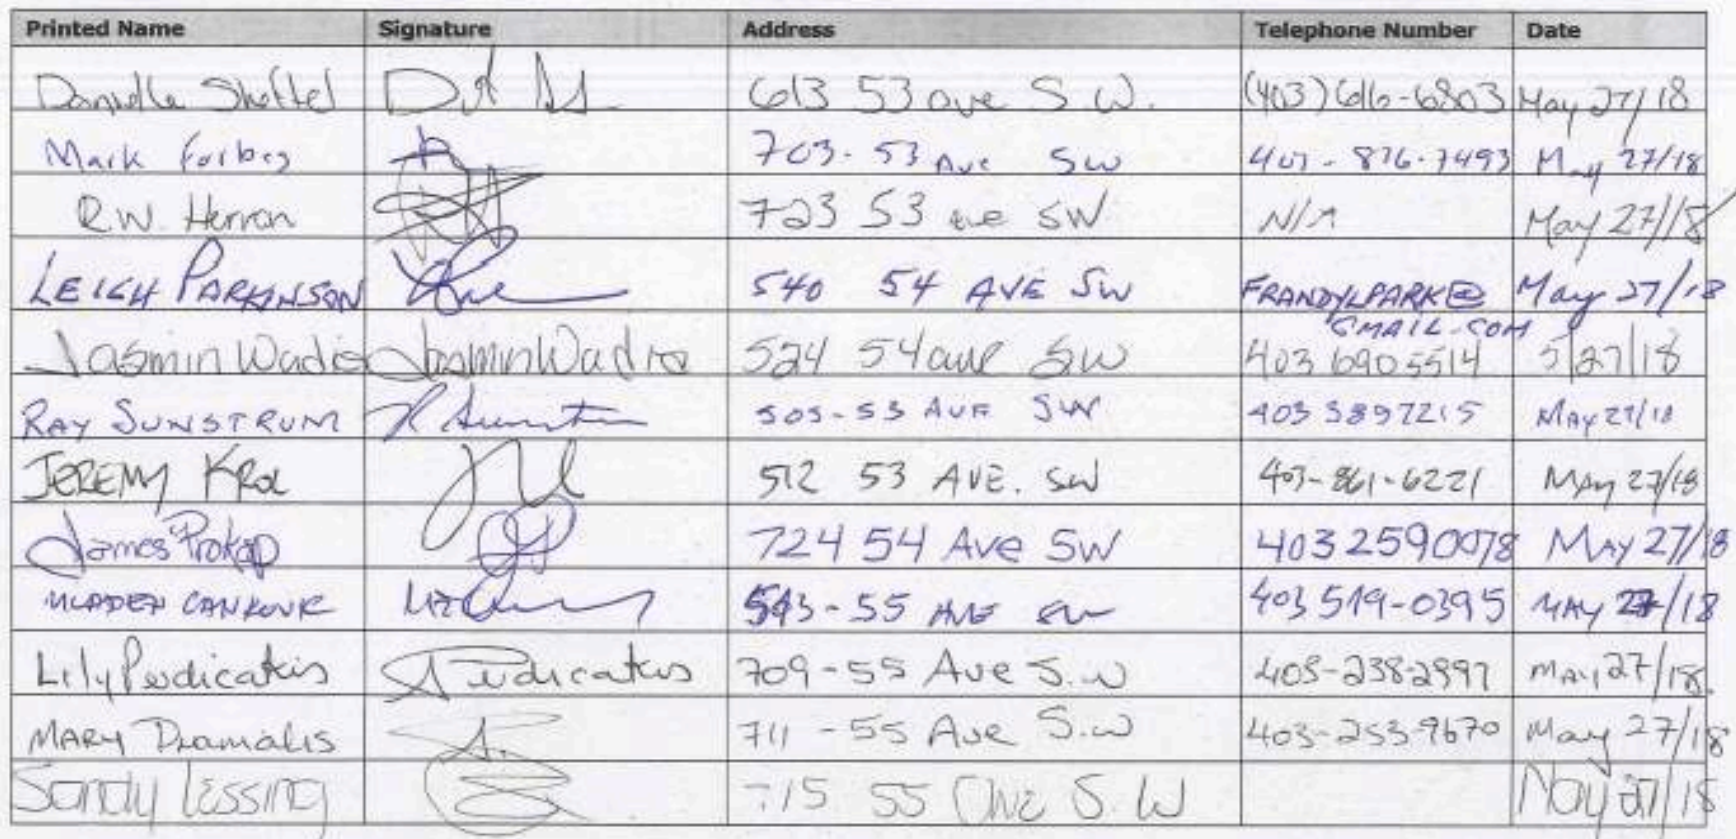 Printed Name Signature Address Telephone Number Date
Danielle Sheftel 613 53 ave S.W. (403) 616-6803 May 27/18
Mark Forbes 703 - 53 Ave SW 403 - 876-7493 May 27/18
R.W. Herron 723 53 ave SW N/A May 27/18
LEIGH PARKINSON 540 54 AVE SW FRANDYLPARK@ May 27/18
GMAIL.COM
Jasmin Wadia Jasmin Wadia 524 54 ave SW 403 690 5514 5/27/18
RAY SUNSTRUM 505-53 AVE SW 403 3897215 MAY 27/18
JEREMY KROL 512 53 AVE. SW 403-861-6221 MAY 27/18
James Prokop 724 54 Ave SW 403 2590078 MAY 27/18
MLADEN CANKOVIC 55 AVE SW 403 519-0395 MAY 27/18
Lily Perdicakis Perdicakis 709-55 Ave S.W 403-238-2997 May 27/18.
MARY Dramalis 711-55 Ave S.W 403-253-9670 May 27/18
Sandy Lessing 715 55 Ave S.W May 27/18